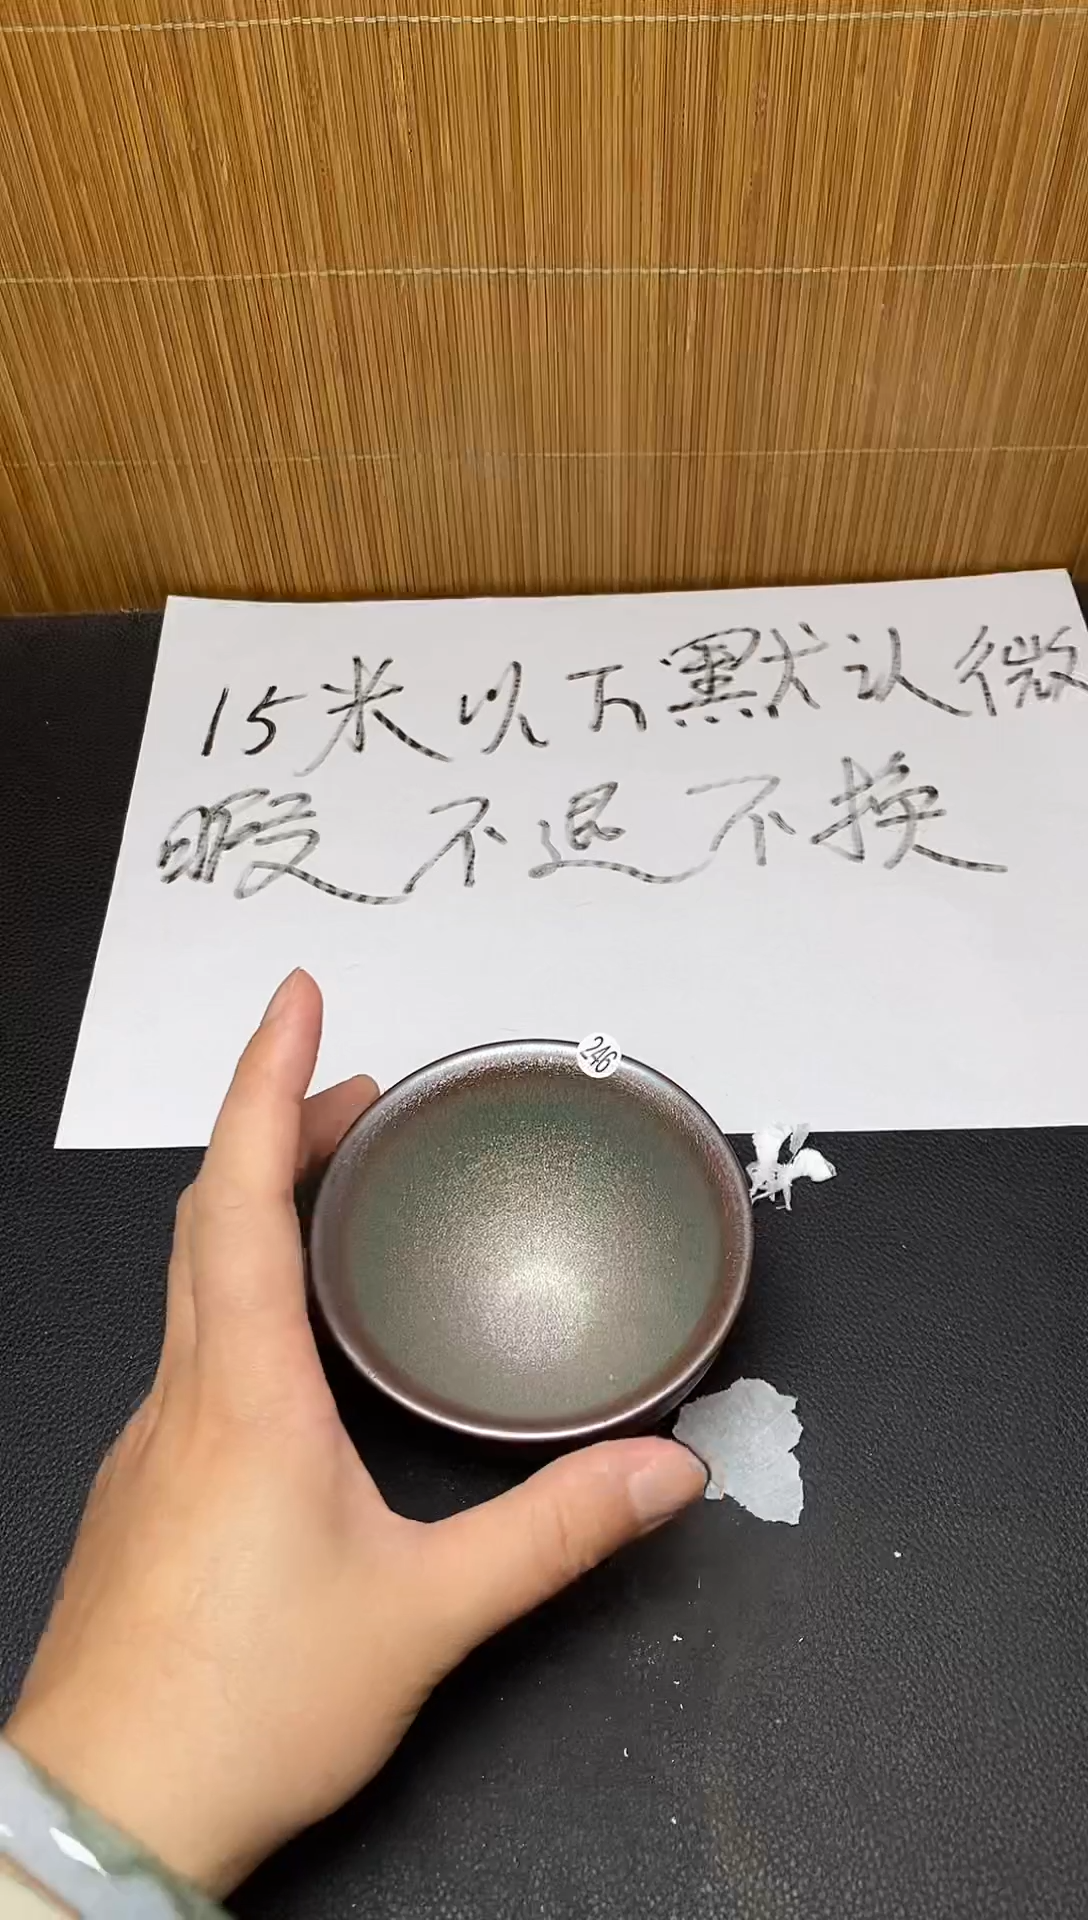 15米以下默认微
暇不退不换
246